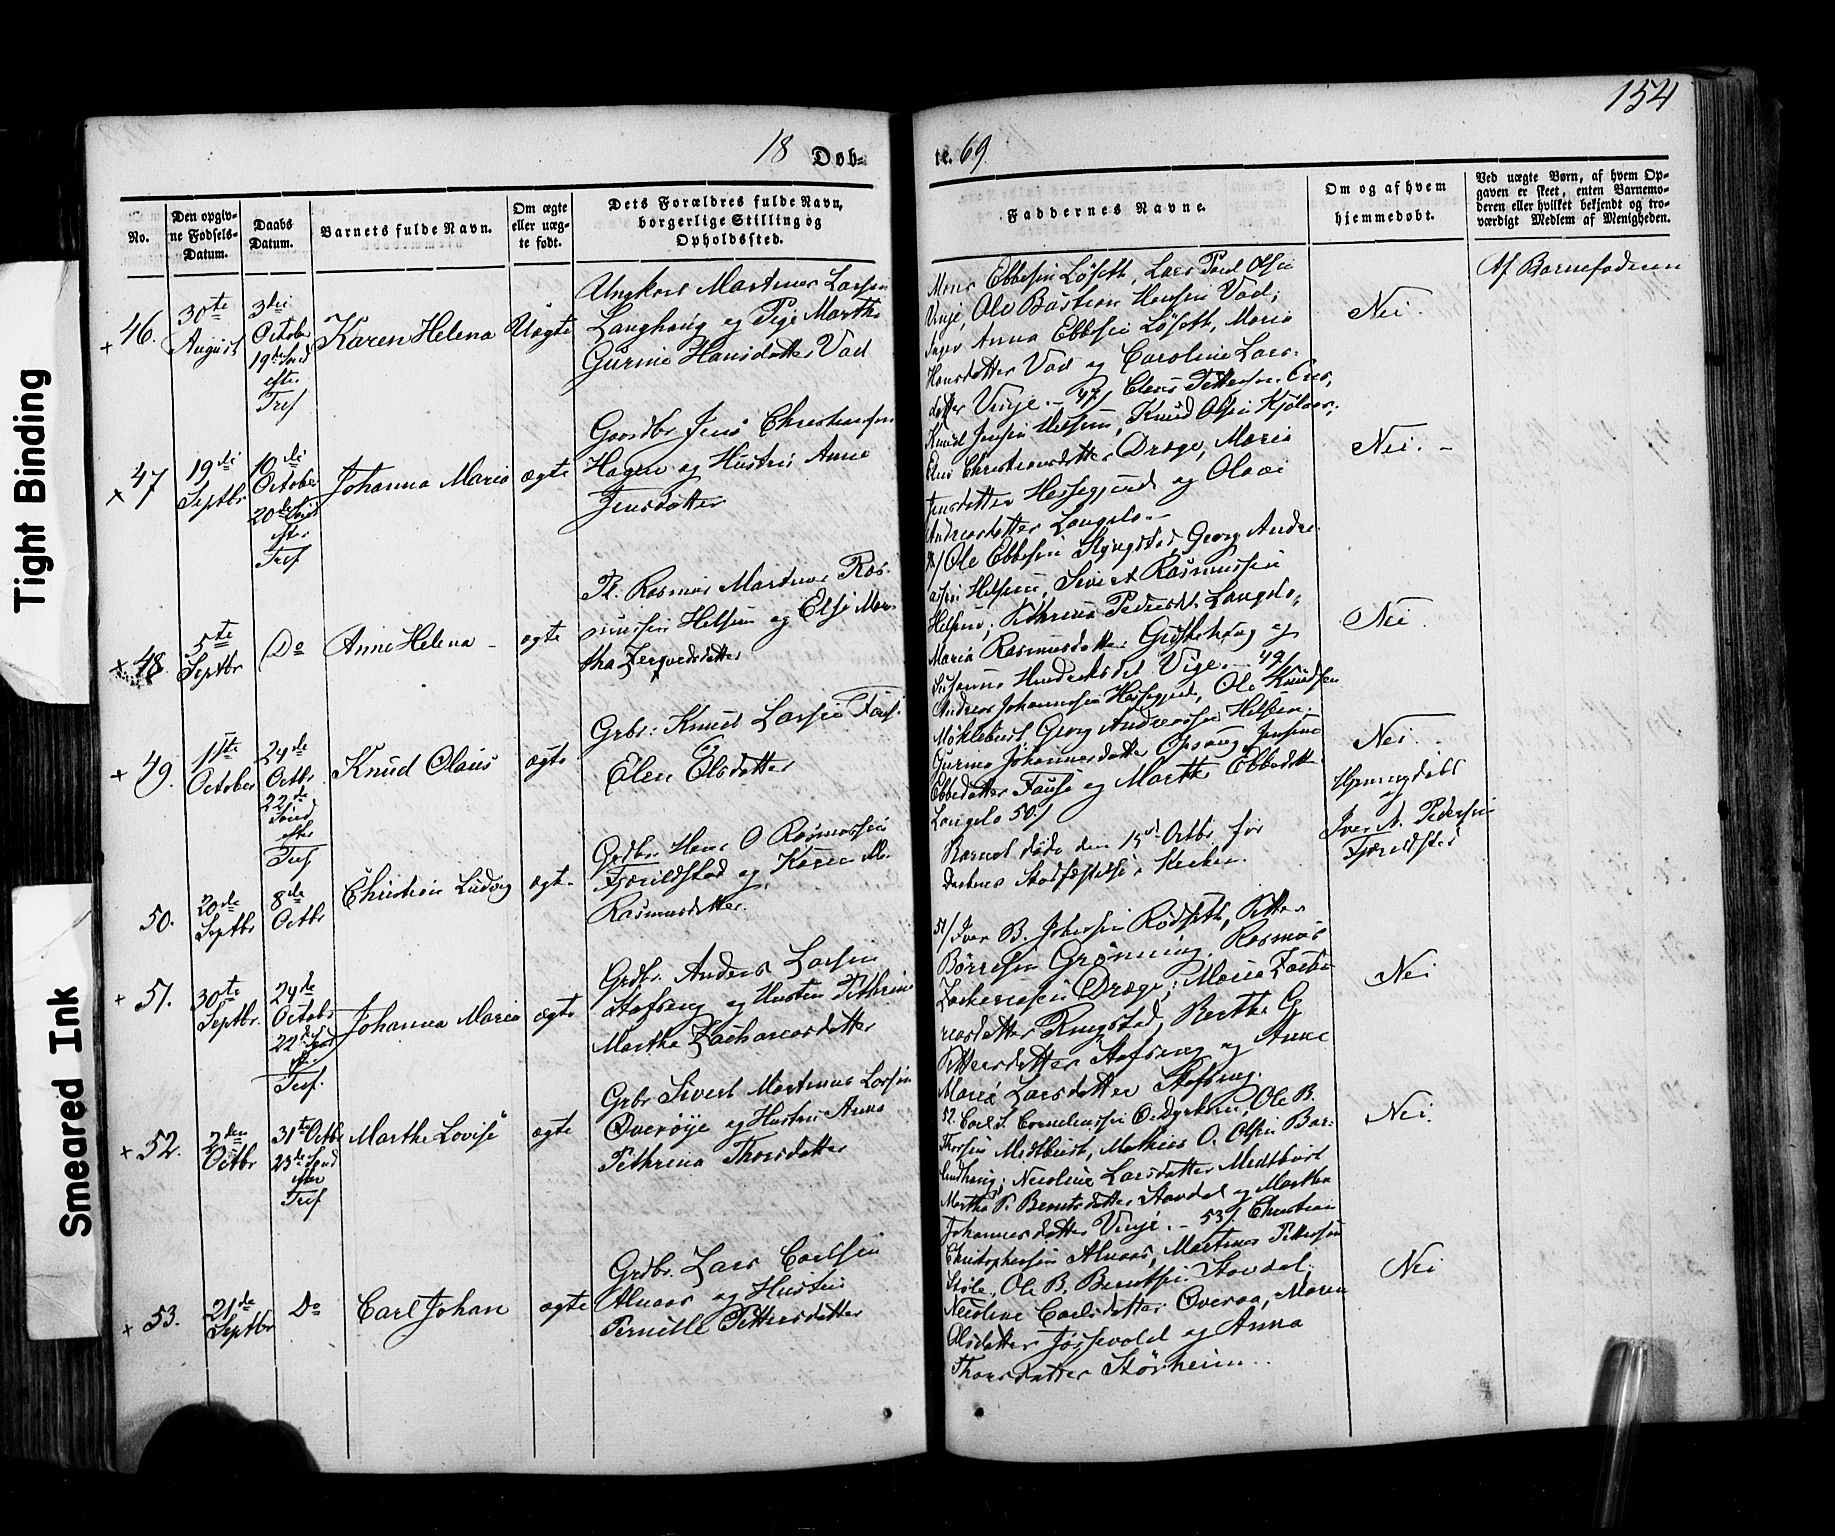 154
18 Døb-
te. 69.
No.
Den opgiv-
ne Fødsels-
Datum.
Daabs
Datum.
Barnets fulde Navn.
Om ægte
eller uæg-
te født.
Dets Forældres fulde Navn,
borgerlige Stilling og
Opholdssted.
Faddernes Navne.
Om og af hvem
hjemmedøbt.
Ved uægte Børn, af hvem Op-
gaven er skeet, enten Barnemo-
deren eller hvilket bekjendt og tro-
værdigt Medlem af Menigheden.
46.
30te
August
3die
October
19de Sønd
efter
Tref.
Karen Helena
Uægte
Ungkarl Martinus Larsen
Langhaug og Pige Marthe
Gurine Hansdatter Vad
Mons Ebbesen Løseth, Lars Paul Olsen
Vinje, Ole Bastian Hansen Vad;
Anna Ebbesen Løseth, Maria
Hansdatter Vad og Caroline Lars-
datter Vinje. -
Nei.
Af Barnefaderen
47
19de
Septbr
10de
October
20de Sønd
efter
Tref
Johanna Maria
ægte
Gaardbr Jens Christensen
Hagen og Hustru Anne
Jensdatter
47/ Claus Pettersen
Knud Jensen Helsem, Knud Olsen
Christiansdatter Drage, Maria
Jensdatter Hessegjerd og Olava
Andreasdatter Langelo. -
Nei. -
48.
5te
Septbr
Do
Anne Helena -
ægte
Pl. Rasmus Martinus Ras-
mussen Helsem og Else Mar-
tha
48/ Ole Ebbesen Ryngstad, Georg Andre-
asen Helsem, Sivert Rasmussen
Helsem; Pethrina Pedersdt. Langelo,
Maria Rasmusdatter og
Susanna Hendriksdt. Vige. -
Nei
49.
1ste
October
24de
Octbr.
22de
Sønd
efter
Tref
Knud Olaus
ægte
Grbr: Knud Larsen
Elen Olsdatter
49/
Andreas Johannesen Hessegjerd, Ole Knudsen
Møklebust Georg Andreassen Helsem.
Gurine Johannesdatter Opsaug, Jensine
Ebbedatter og Marthe Ebbedatt
Langelo
Nei.
50.
20de
Septbr
8de
Octbr
Christian Ludvig
ægte
Grdbr. Hans O Rasmussen
Fjørildstad og Karen M.
Rasmusdatter.
50/
Barnet døde den 15de Octbr før
Daabens Stadfæstelse i Kirken.
Hjemmedøbt
af
Iver A. Pedersen
Fjørildstad
51.
30te
Septbr.
24de
Octobr
22de Sønd
eft.
Tref.
Johanna Maria
ægte
Grdbr. Anders Larsen
Stafseng og Hustru Pethrine
Martha Zachariasdatter
51/ Iver B. Johnsen Rødseth, Petter
Børresen Grønning, Rasmus
Zachariasen Drage; Maria Zacha-
riasdatter Ringstad, Berthe G
Pettersdatter Stafseng og Anne
Maria Larsdatter Stafseng.
Nei
52.
2den
Octbr
31te Octbr
23de Sønd
efter
Tref
Marthe Lovise
ægte
Grbr Sivert Martinus Larsen
Øverøye og Hustru Anne
Pethrina Thorsdatter
52. Carl S. Corneliussen Ole B.
Thorsen Medtbust, Mathias O. Olsen Bar-
; Nicoline Larsdatter Medtbust
Martha P. Berntsdatter Stavdal og Marthe
Johannesdatter Vinje. -
Nei.
53.
21de
Septbr
Do
Carl Johan
ægte
Grdbr. Lars Carlsen
Alnaas og Hustru
Pernille Pettersdatter
53/ Christian
Christophersen Alnaas, Martinus Pettersen
Ole B. Berntsen Stavdal;
Nicoline Carlsdatter Øveraa, Maren
Olsdatter Jossevold og Anna
Thorsdatter Storheim.
Nei
Tight Binding
Smeared Ink